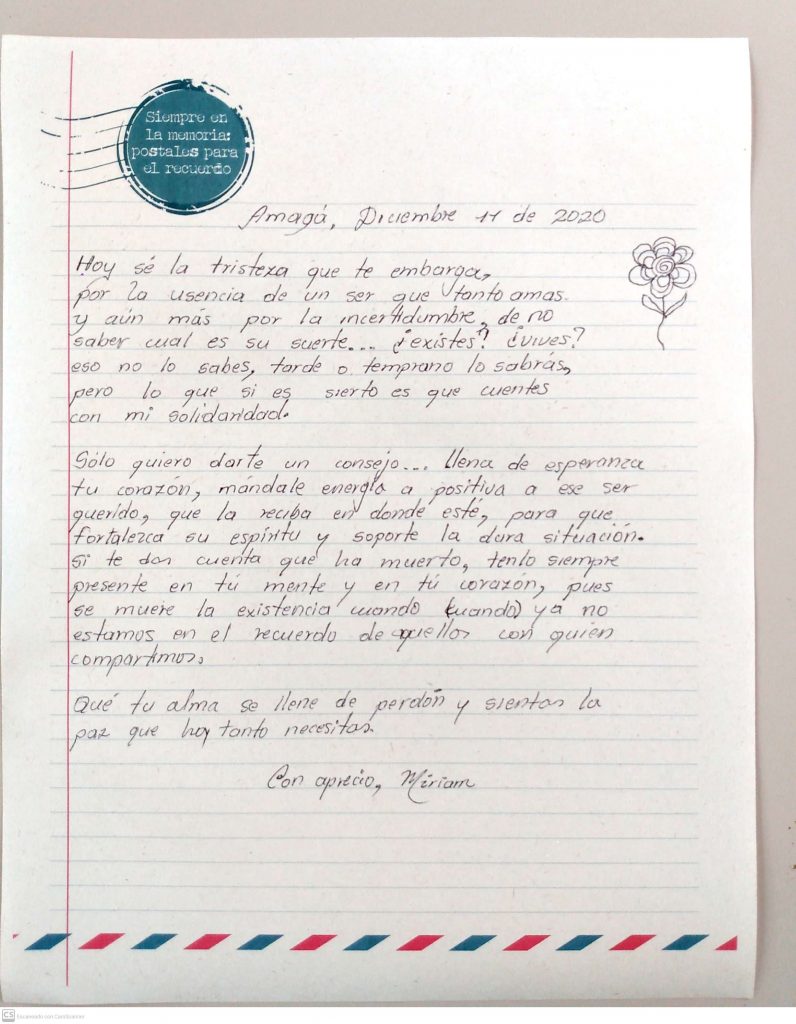 Siempre en
la memoria:
postales para
el recuerdo
Amagá, Diciembre 11 de 2020
Hoy sé la tristeza que te embarga,
por la usencia de un ser que tanto amas
y aún más por la incertidumbre, de no
saber cual es su suerte... ¿existes? ¿vives?
eso no lo sabes, tarde o temprano lo sabrás,
pero lo que si es sierto es que cuentes
con mi solidaridad.
Sólo quiero darte un consejo... llena de esperanza
tu corazón, mándale energía a positiva a ese ser
querido, que la reciba en donde esté, para que
fortalezca su espíritu y soporte la dura situación.
Si te das cuenta que ha muerto, tenlo siempre
presente en tú mente y en tú corazón, pues
se muere la existencia cuando (cuando) ya no
estamos en el recuerdo de aquellos con quien
compartimos.
Qué tu alma se llene de perdón y sientas la
paz que hoy tanto necesitas.
Con aprecio, Miriam
CS Escaneado con CamScanner